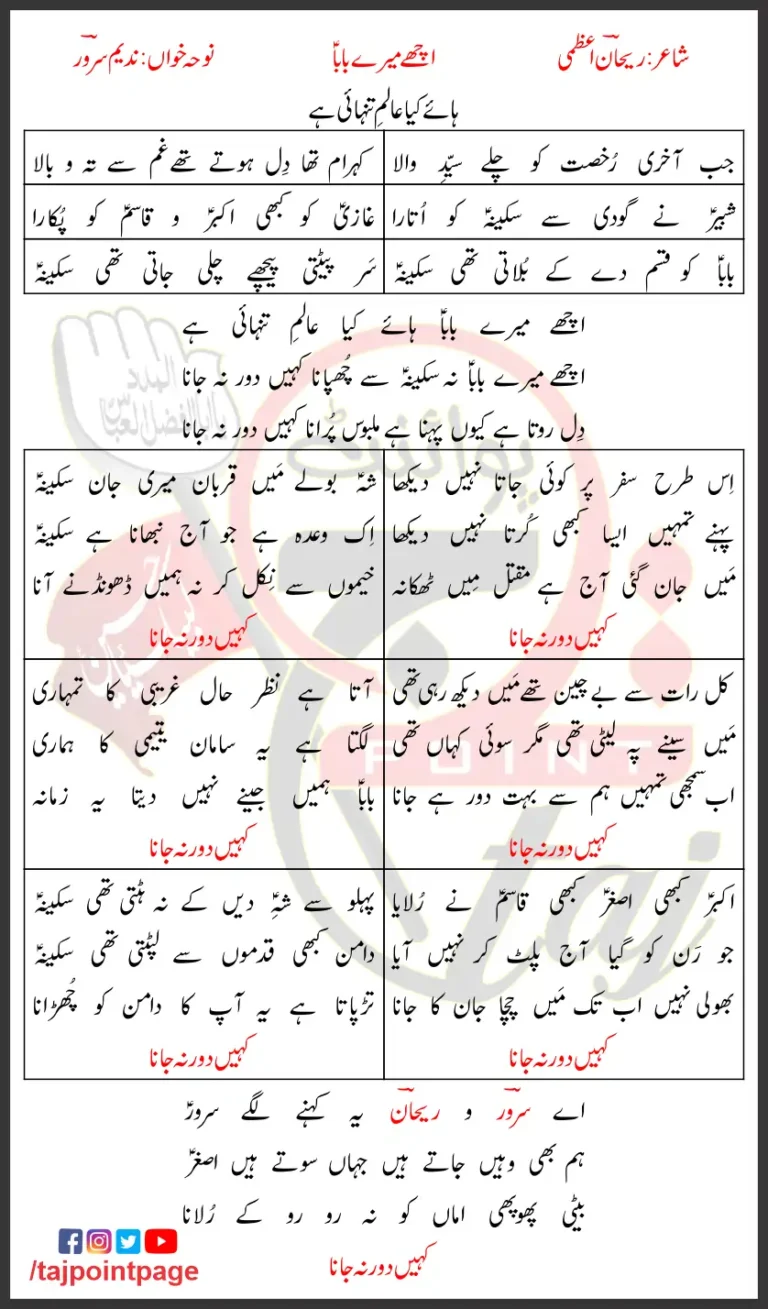 شاعر: ریحان اعظمی
اچھے میرے باباؑ
نوحہ خواں: ندیم سرور
ہائے کیا عالمِ تنہائی ہے
جب آخری رُخصت کو چلے سیّدِ والا
کہرام تھا دِل ہوتے تھے غم سے تہ و بالا
شبیرؑ نے گودی سے سکینہؑ کو اُتارا
غازیؑ کو کبھی اکبرؑ و قاسمؑ کو پُکارا
باباؑ کو قسم دے کے بُلاتی تھی سکینہؑ
سَر پیٹتی پیچھے چلی جاتی تھی سکینہؑ
اچھے میرے باباؑ ہائے کیا عالمِ تنہائی ہے
اچھے میرے باباؑ نہ سکینہؑ سے چُھپانا کہیں دور نہ جانا
دِل روتا ہے کیوں پہنا ہے ملبوس پُرانا کہیں دور نہ جانا
اِس طرح سفر پر کوئی جاتا نہیں دیکھا
پہنے تمہیں ایسا کبھی کُرتا نہیں دیکھا
مَیں جان گئی آج ہے مقتل مِیں ٹھکانہ
کہیں دور نہ جانا
شہؑ بولے مَیں قربان میری جان سکینہؑ
اِک وعدہ ہے جو آج نبھانا ہے سکینہؑ
خیموں سے نِکل کر نہ ہمیں ڈھونڈنے آنا
کہیں دور نہ جانا
کل رات سے بے چین تھے مَیں دیکھ رہی تھی
مَیں سینے پہ لیٹی تھی مگر سوئی کہاں تھی
اب سمجھی تمہیں ہم سے بہت دور ہے جانا
کہیں دور نہ جانا
آتا ہے نظر حال غریبی کا تمہاری
لگتا ہے یہ سامان یتیمی کا ہماری
باباؑ ہمیں جینے نہیں دیتا یہ زمانہ
کہیں دور نہ جانا
اکبرؑ کبھی اصغرؑ کبھی قاسمؑ نے رُلایا
جو رَن کو گیا آج پلٹ کر نہیں آیا
بھولی نہیں اب تک مَیں چچا جان کا جانا
کہیں دور نہ جانا
پہلو سے شہِؑ دیں کے نہ ہٹتی تھی سکینہؑ
دامن کبھی قدموں سے لپٹتی تھی سکینہؑ
تڑپاتا ہے یہ آپ کا دامن کو چُھڑانا
کہیں دور نہ جانا
اے سرور و ریحان یہ کہنے لگے سرورؑ
ہم بھی وہیں جاتے ہیں جہاں سوتے ہیں اصغرؑ
بیٹی پھوپھی اماں کو نہ رو رو کے رُلانا
کہیں دور نہ جانا
/tajpointpage
پوائنٹ
تاج
POINT
taj
المدد
یا ابالفضل العباس
یا حسین